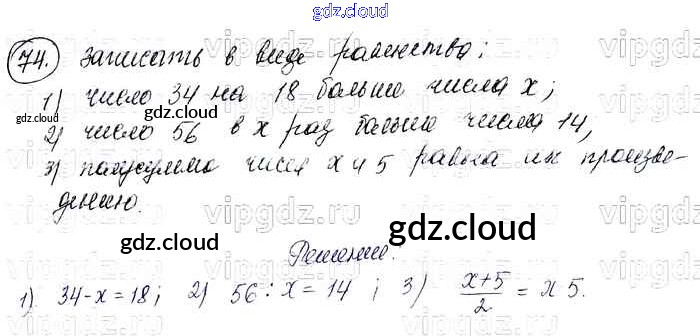 gdz.cloud
74. Записать в виде равенства:
1) число 34 на 18 больше числа x;
gdz.cloud
gdz.cloud
2) число 56 в x раз больше числа 14;
3) полусумма чисел x и 5 равна их произве-
дению.
gdz.cloud
gdz.cloud
Решение.
1) 34-x=18; 2) 56:x=14; 3) (x+5)/2 = x 5.
vipgdz.ru